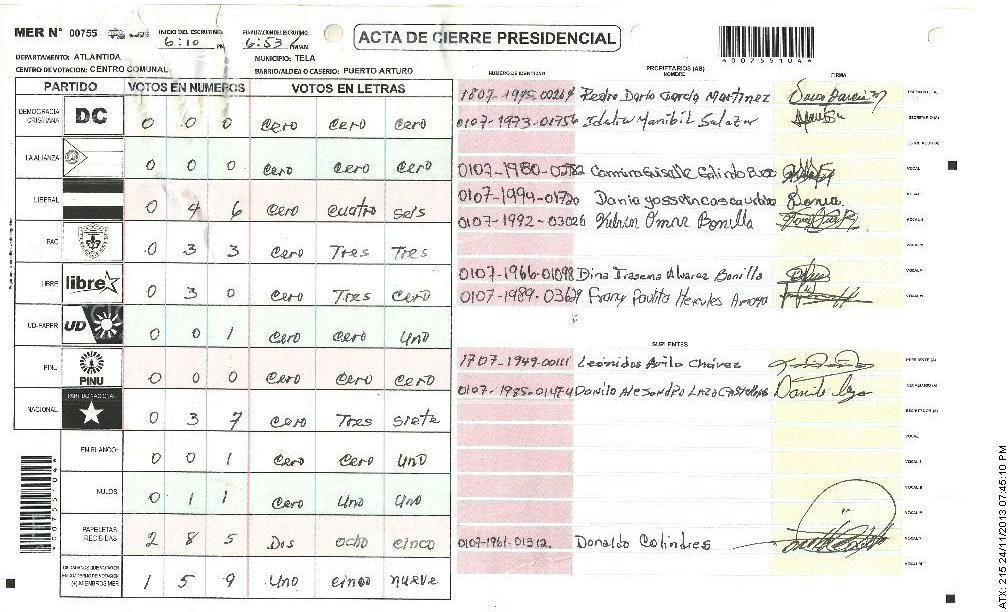 MER N° 00755 INICIO DEL ESCRUTINIO: 6:10 PM FINALIZACION DEL ESCRUTINIO: 6:53 ACTA DE CIERRE PRESIDENCIAL
*00755104*
DEPARTAMENTO: ATLANTIDA MUNICIPIO: TELA
CENTRO DE VOTACION: CENTRO COMUNAL BARRIO/ALDEA O CASERIO: PUERTO ARTURO
PARTIDO VOTOS EN NUMEROS VOTOS EN LETRAS
DEMOCRACIA CRISTIANA DC 0 0 0 Cero Cero Cero
LA ALIANZA 0 0 0 Cero Cero Cero
LIBERAL 0 4 6 Cero Cuatro Seis
PAC 0 3 3 Cero Tres Tres
LIBRE libre 0 3 0 Cero Tres Cero
UD-FAPER UD 0 0 1 Cero Cero Uno
PINU PINU 0 0 0 Cero Cero Cero
NACIONAL PARTIDO NACIONAL 0 3 7 Cero Tres Siete
EN BLANCO 0 0 1 Cero Cero Uno
NULOS 0 1 1 Cero Uno Uno
PAPELETAS RECIBIDAS 2 8 5 Dos Ocho Cinco
CIUDADANOS QUE VOTARON EN CUADERNO DE VOTACION (+) MIEMBROS MER 1 5 9 Uno Cinco Nueve
*00755104*
PROPIETARIOS (AS)
NUMERO DE IDENTIDAD NOMBRE FIRMA
Pedro Dario Garcia Martinez PRESIDENTE (A)
0107-1973-01756 Salazar SECRETARIO (A)
ESCRUTADOR (A)
0107-1980- VOCAL
0107-1994-01720 Dania VOCAL
0107-1992-03026 Omar Bonilla VOCAL
0107-1966-01098 Dina Alvarez Bonilla VOCAL
0107-1989-03629 Hercules VOCAL
SUPLENTES
1707-1949-00111 Leonidas Avila Chávez PRESIDENTE (A)
0107-1985-01474 Danilo Alejandro SECRETARIO (A)
ESCRUTADOR (A)
VOCAL
VOCAL
VOCAL
VOCAL
0107-1961-01312 Donaldo Colindres VOCAL
VOCAL
ATX: 215 24/11/2013 07:45:10 PM